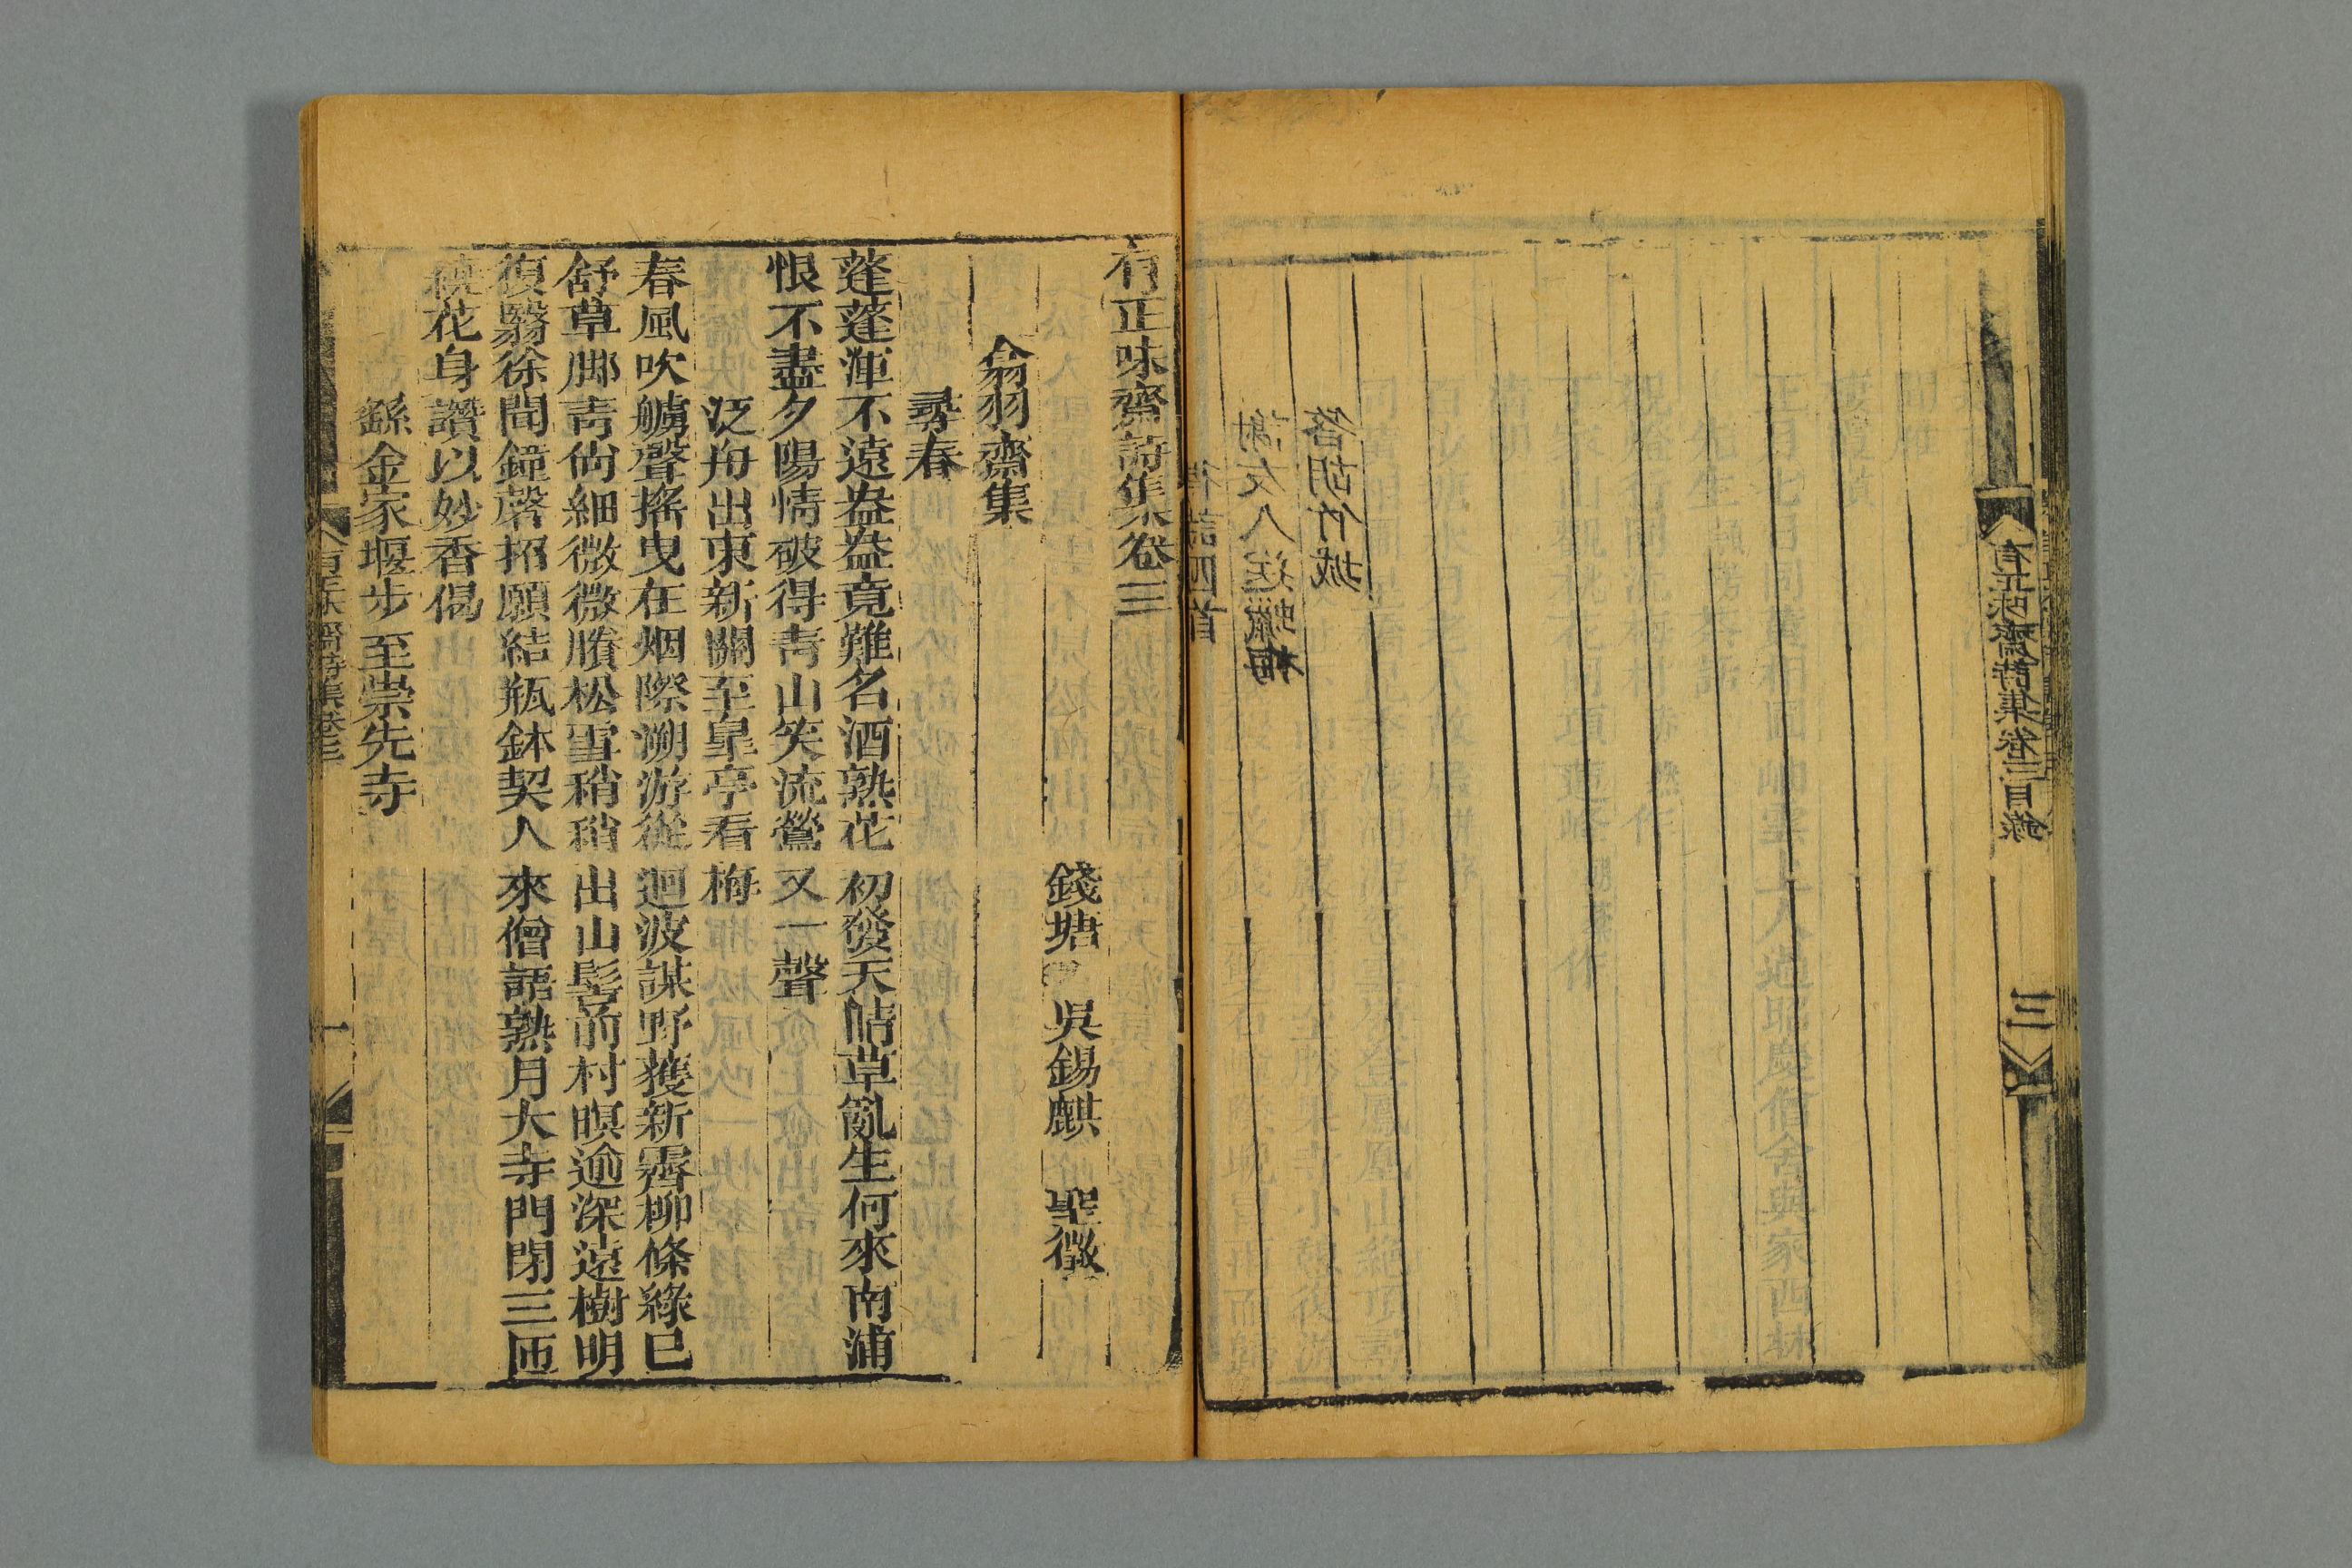 有正味齋詩集卷三目錄
三
答胡竹城
謝友人送蠟梅
詩四首
有正味齋詩集卷三
錢塘 吳錫麒 聖徵
翕羽齋集
尋春
蓬蓬渾不遠盎盎竟難名酒熟花初發天草亂生何來南浦
恨不盡夕陽情破得青山笑流鶯又一聲
泛舟出東新關至皐亭看梅
春風吹艣聲搖曳在烟際溯游從迴波謀野獲新霽柳條綠已
舒草脚青尙細微微賸松雪稍稍出山髻前村暝逾深遠樹明
復翳徐聞鐘磬招願結瓶鉢契人來僧語熟月大寺門閉三匝
繞花身讚以妙香偈
繇金家堰步至崇先寺
有正味齋詩集卷三
一